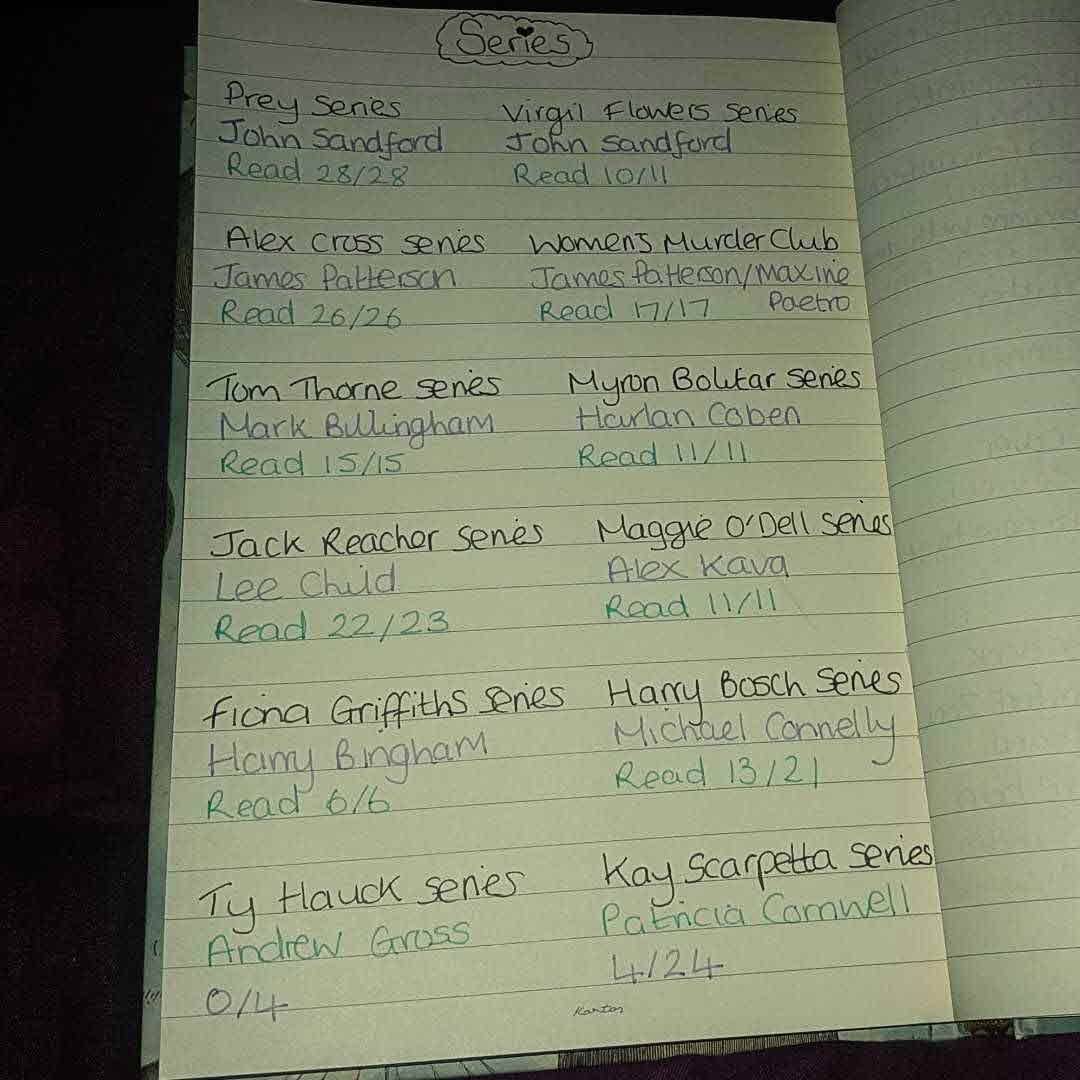 Series
Prey series
John Sandford
Read 28/28
Virgil Flowers series
John Sandford
Read 10/11
Alex Cross series
James Patterson
Read 26/26
Women's Murder Club
James Patterson/Maxine
Paetro
Read 17/17
Tom Thorne series
Mark Billingham
Read 15/15
Myron Bolitar series
Harlan Coben
Read 11/11
Jack Reacher series
Lee Child
Read 22/23
Maggie O'Dell series
Alex Kava
Read 11/11
Fiona Griffiths series
Harry Bingham
Read 6/6
Harry Bosch series
Michael Connelly
Read 13/21
Ty Hauck series
Andrew Gross
0/4
Kay Scarpetta series
Patricia Cornwell
4/24